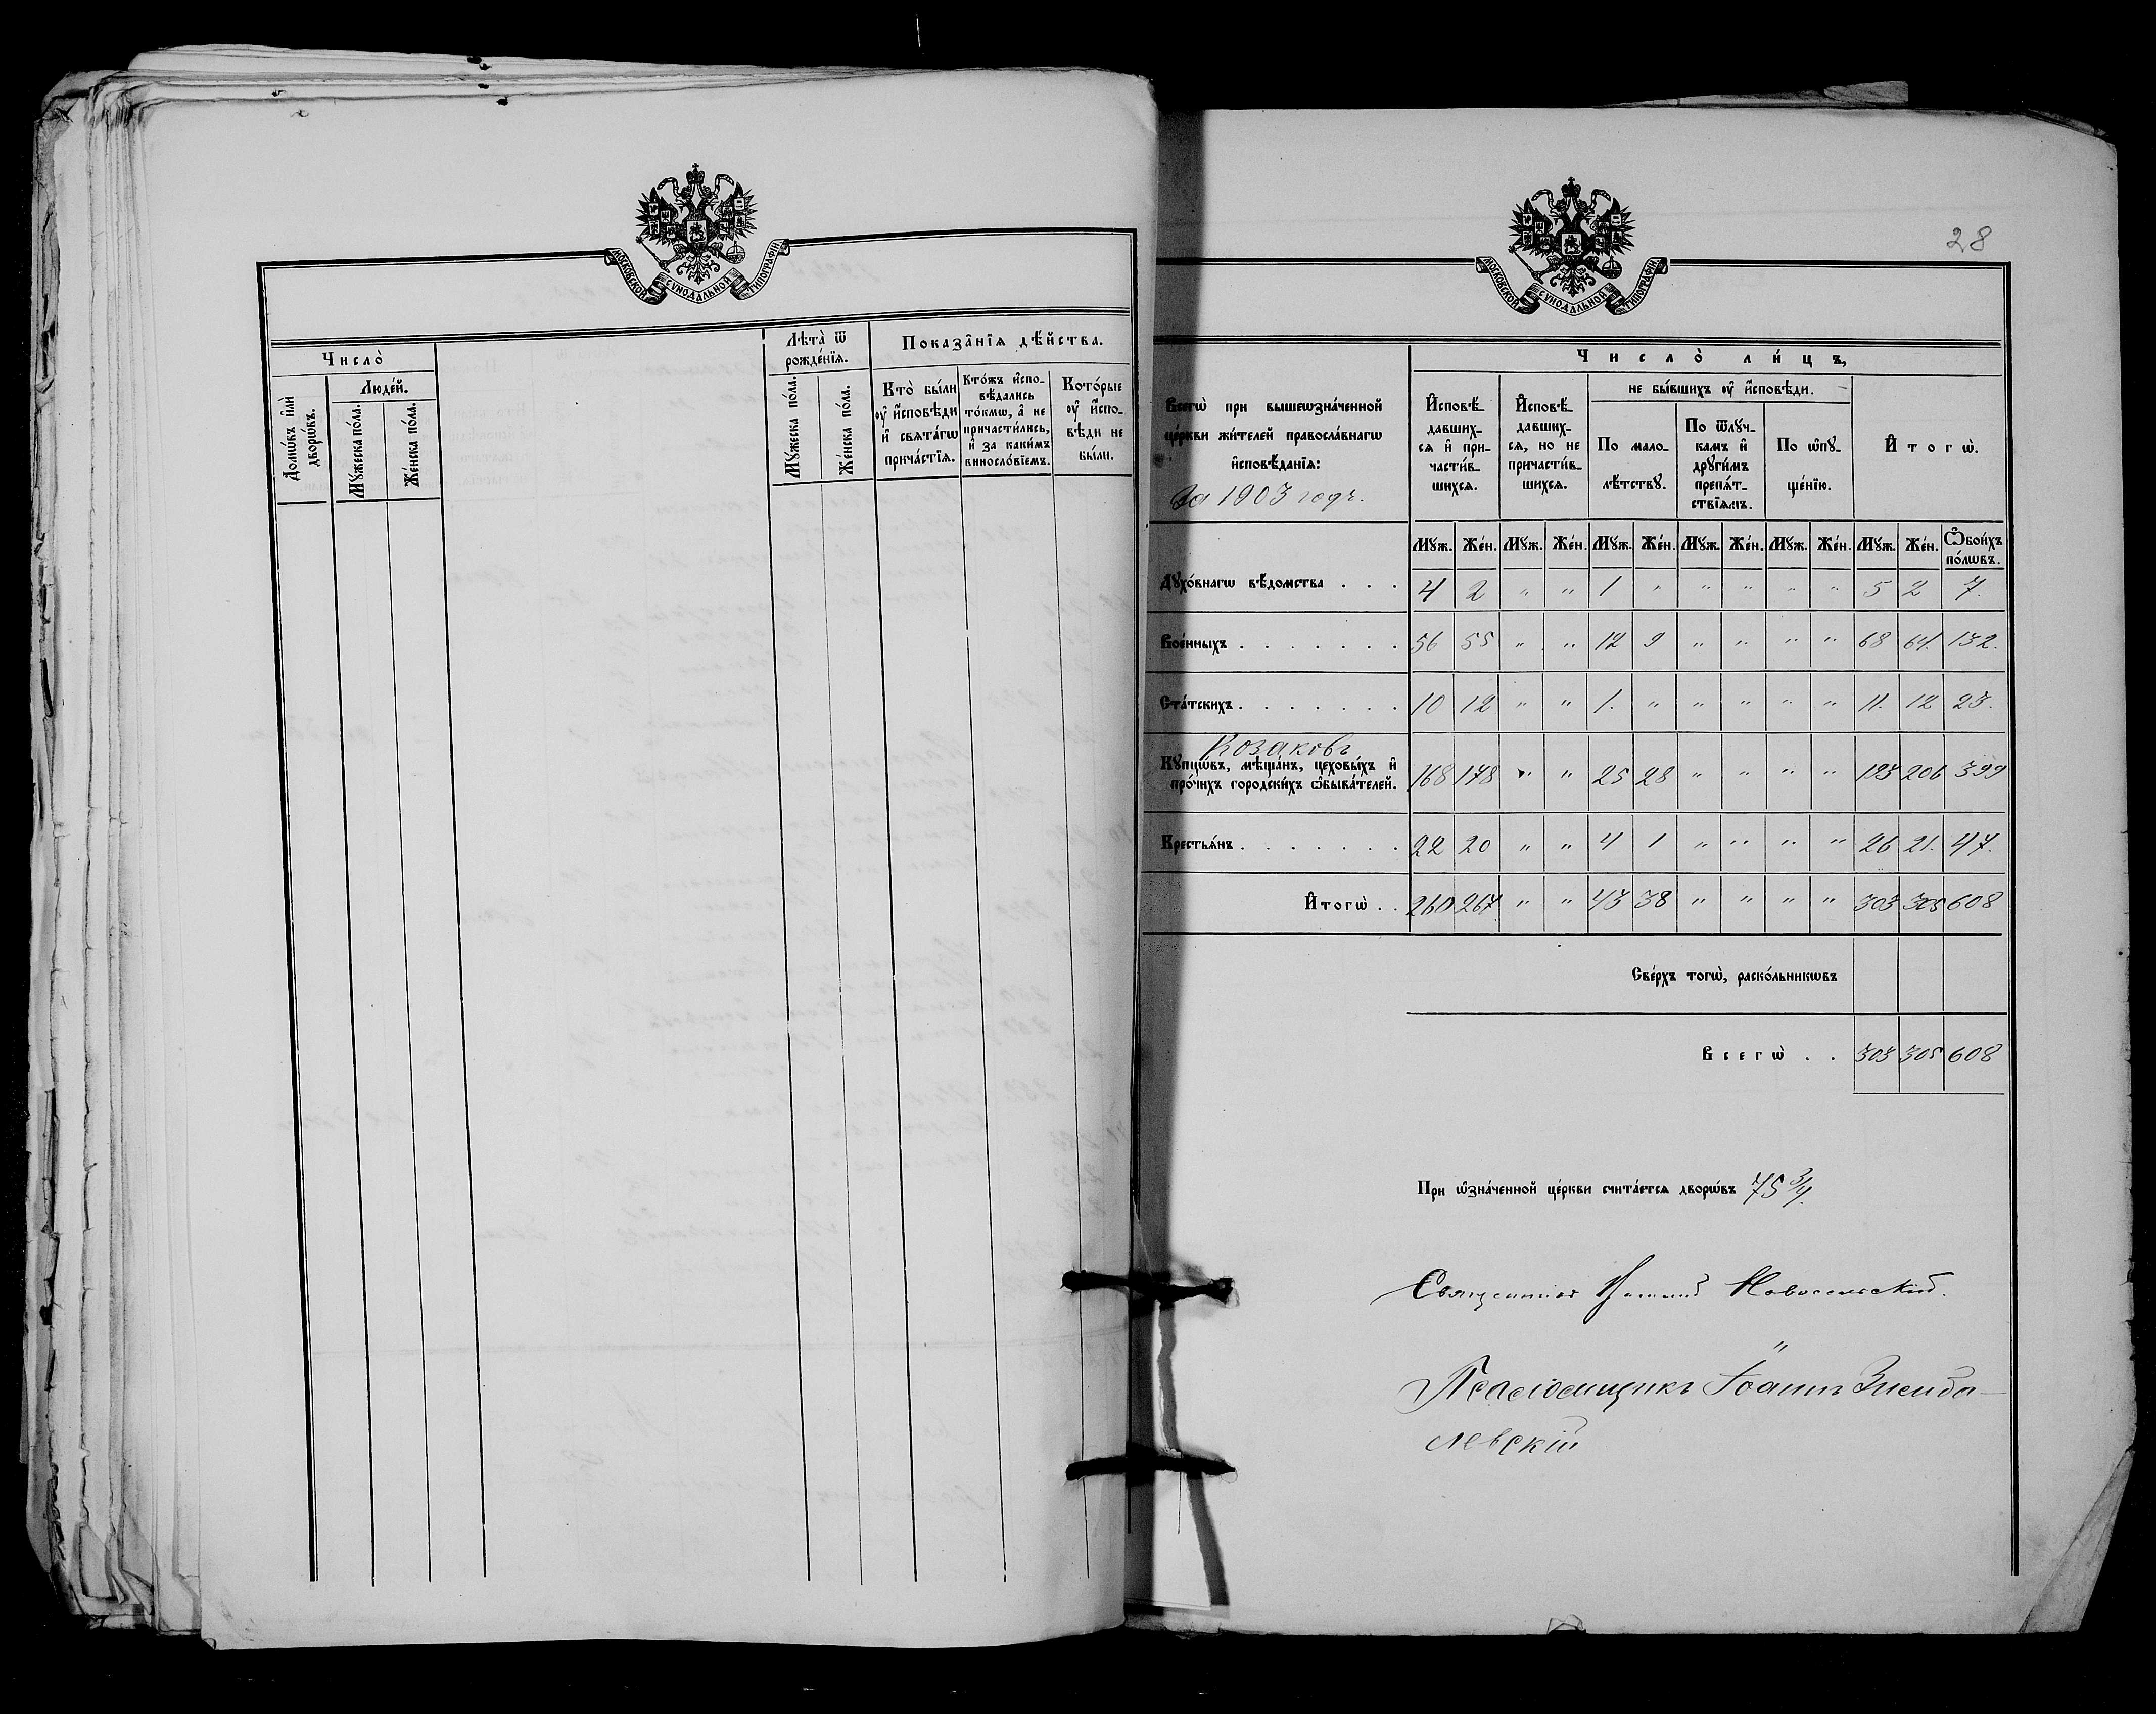 МОСКОВСКОЙ СѴНОДАЛЬНОЙ ТИПОГРАФІИ
Число̀
Домѡ́въ и҆лѝ дворѡ́въ.
Люде́й.
Мꙋ́жеска по́ла.
Же́нска по́ла.
Лѣ́та ѿ рожде́нїѧ.
Мꙋ́жеска по́ла.
Же́нска по́ла.
Показа̑нїѧ дѣ́йства.
Кто̀ бы́ли
ᲂу҆ и҆́сповѣди
и҆ свѧта́гѡ
прича́стїѧ.
Кто́жъ и҆спо-
вѣ́дались
то́кмѡ, а҆ не
причасти́лись,
и҆ за каки́мъ
винослові́емъ.
Кото́рые
ᲂу҆ и҆́спо-
вѣди не
бы́ли.
28
МОСКОВСКОЙ СѴНОДАЛЬНОЙ ТИПОГРАФІИ
Всегѡ̀ при вышеѡзна́ченной
це́ркви жи́телей правосла́внагѡ
и҆сповѣ́данїѧ:
За 1903 годъ.
Число̀ ли́цъ,
И҆сповѣ́-
давших-
сѧ и҆ при-
части́в-
шихсѧ.
И҆сповѣ́-
давших-
сѧ, но не
причасти́в-
шихсѧ.
не бы́вшихъ ᲂу҆ и҆́сповѣди.
По мало-
лѣ́тствꙋ.
По ѿлꙋч-
камъ и҆
дрꙋги́мъ
препѧ́т-
ствїѧмъ.
По ѡ҆пꙋ-
ще́нїю.
И҆тогѡ̀.
Мꙋж. Же́н. Мꙋж. Же́н. Мꙋж. Же́н. Мꙋж. Же́н. Мꙋж. Же́н. Мꙋж. Же́н. Ѻ҆бои́хъ по́лѡвъ.
Дꙋхо́внагѡ вѣ́домства . . . 4 2 " " 1 " " " " " 5 2 7.
Вое́нныхъ . . . . . . . 56 55 " " 12 9 " " " " 68 64. 132.
Ста́тскихъ . . . . . . . 10 12 " " 1. " " " " " 11. 12 23.
Козаковъ
Кꙋпцѡ́въ, мѣща́нъ, цеховы́хъ и҆
про́чихъ городски́хъ ѡ҆быва́телей. 168 178 " " 25 28 " " " " 193 206 399
Крестьѧ́нъ . . . . . . . 22 20 " " 4 1 " " " " 26 21. 47.
И҆тогѡ̀ . . 260 267. " " 43 38 " " " " 303 305 608
Све́рхъ тогѡ̀, раско́льникѡвъ
Всегѡ̀ . . 303 305 608
При ѡ҆зна́ченной це́ркви счита́етсѧ дворѡ́въ 75 3/4.
Священникъ Новосельскій.
Псаломщикъ Іоаннъ
левскій